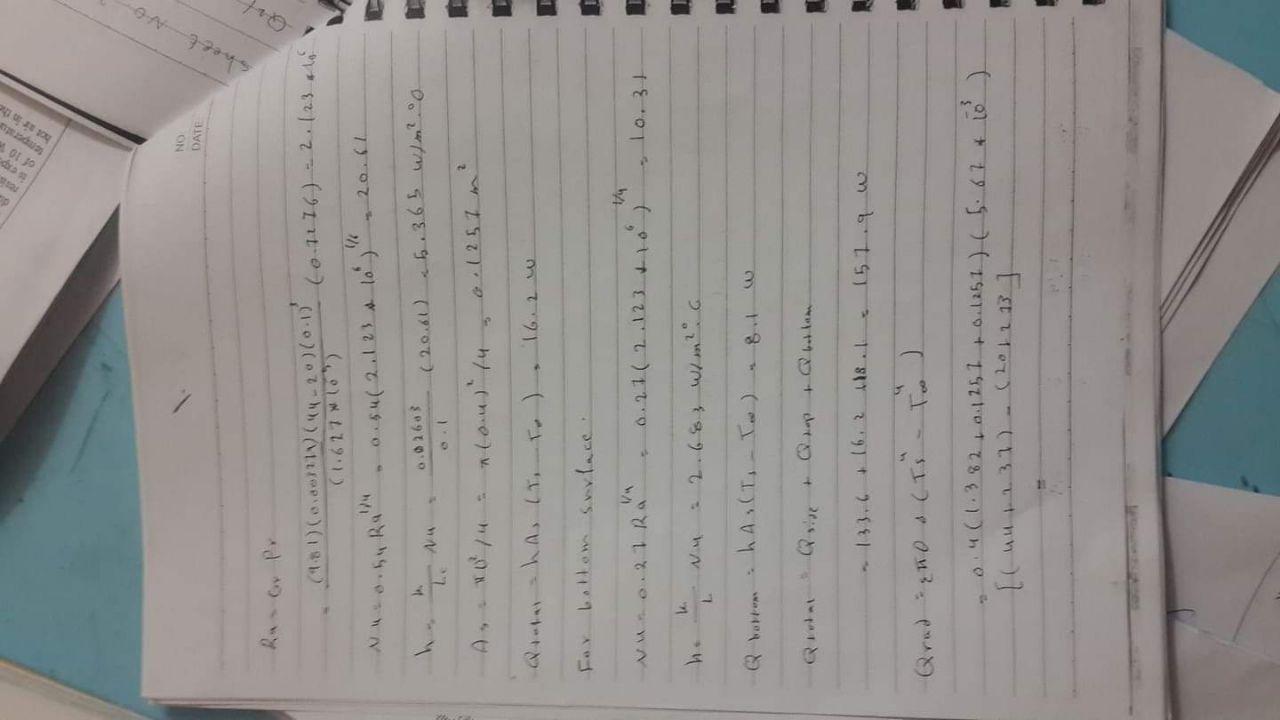 Sheet NO-
Qu
NO
DATE
Ra = Gr Pr
= (9.81)(0.003221)(44-20)(0.1)³ / (1.627×10⁻⁵) (0.7276) = 2.123 × 10⁶
Nu = 0.54 Ra^1/4 = 0.54 (2.123 × 10⁶)^1/4 = 20.61
h = k/Lc Nu = 0.02603/0.1 (20.61) = 5.365 W/m².°C
As = πD²/4 = π(0.4)²/4 = 0.1257 m²
Qtotal = hAs (Ts - T∞) = 16.2 W
For bottom surface.
Nu = 0.27 Ra^1/4 = 0.27 (2.123 × 10⁶)^1/4 = 10.31
h = k/L Nu = 2.683 W/m².°C
Qbottom = hAs (Ts - T∞) = 8.1 W
Qtotal = Qside + Qtop + Qbottom
= 133.6 + 16.2 + 8.1 = 157.9 W
Qrad = επD σ (Ts⁴ - T∞⁴)
= 0.4 (1.382 + 0.1257 + 0.1257) (5.67 × 10⁻³)
[(44+237) - (20+273]